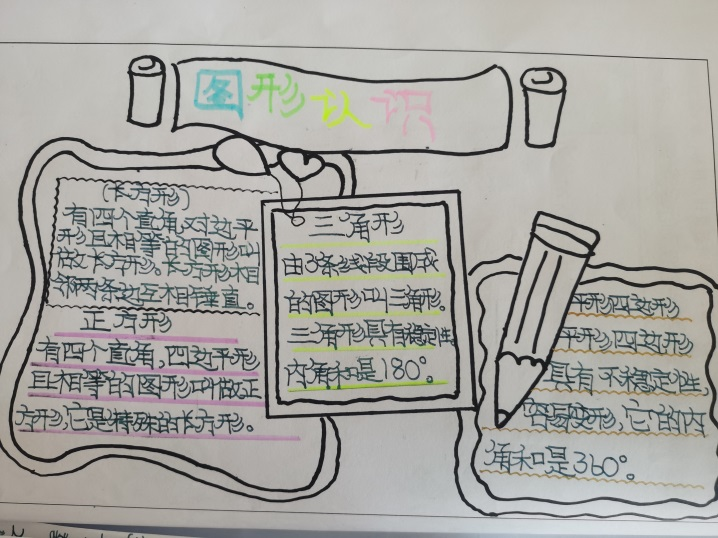 图形认识
(长方形)
有四个直角,对边平
形且相等的图形叫
做长方形。长方形相
邻两条边互相垂直。
正方形
有四个直角,四边平形
且相等的图形叫做正
方形,它是特殊的长方形。
三角形
由3条线段围成
的图形叫三角形。
三角形具有稳定性
内角和是180°。
平形四边形
平形四边形
具有不稳定性,
容易变形,它的内
角和是360°。